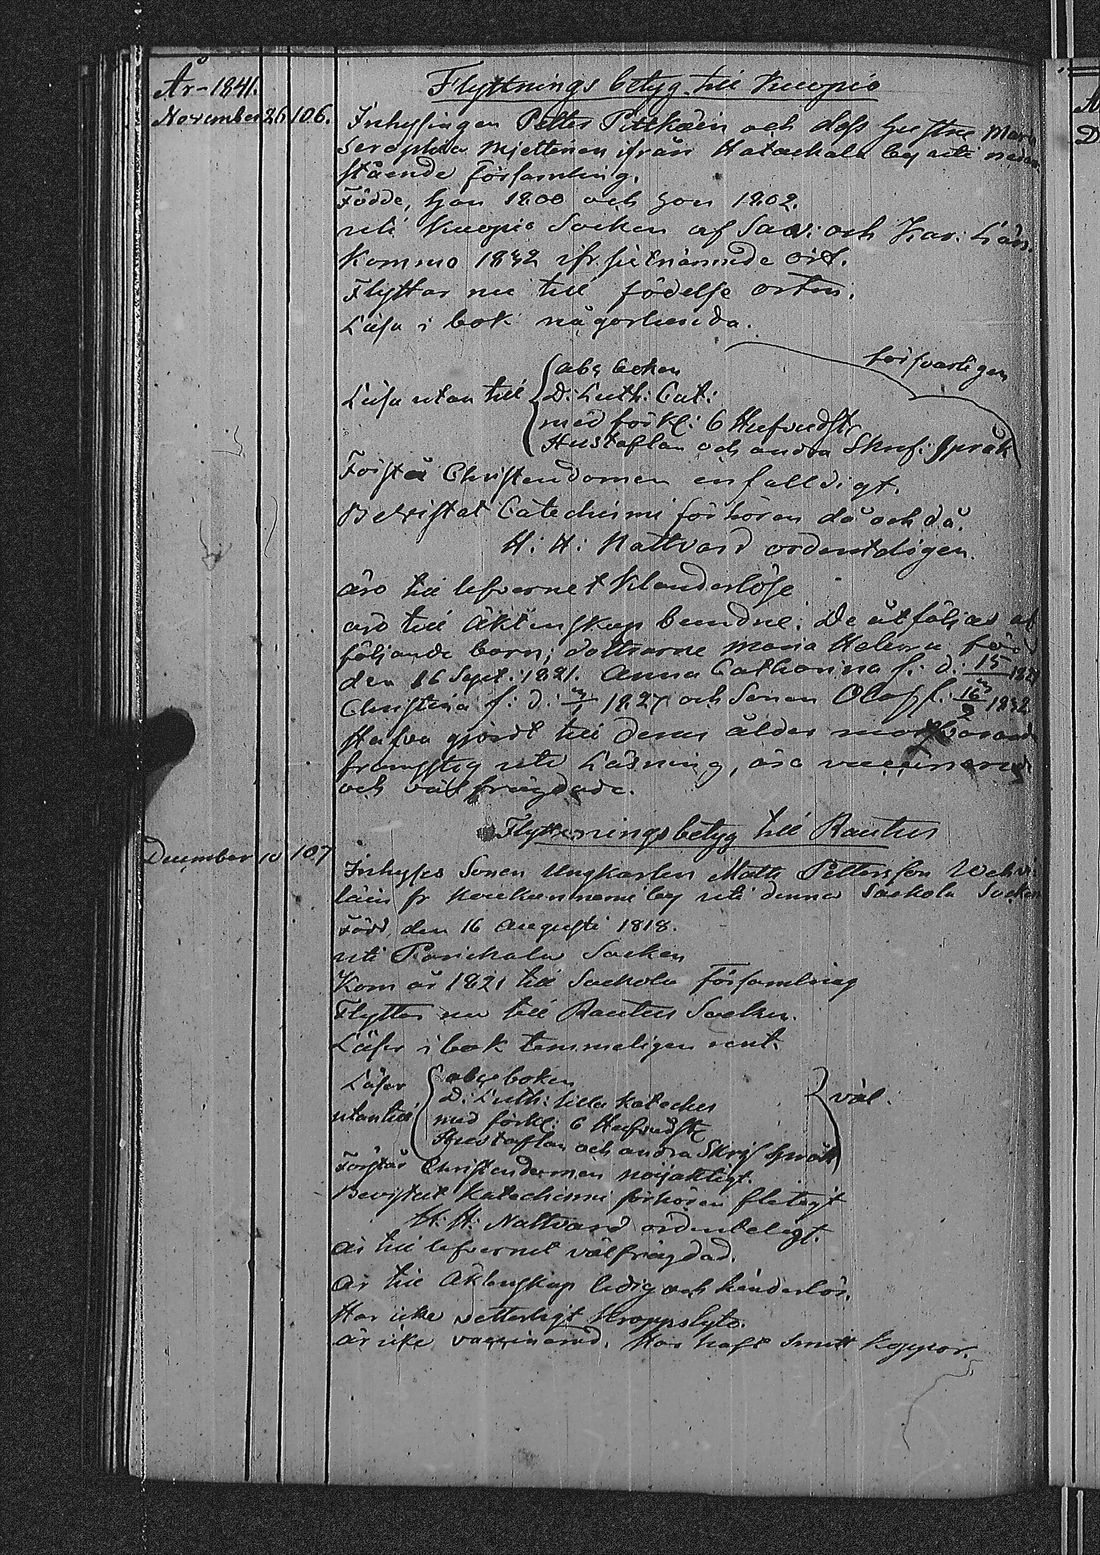 År 1841.
Flyttnings betyg till Kuopio
November 26 106.
Inhyssingen Petter Pitkäin och dess hustru Maria
Seraphia Mjettinen ifrån Hatackala by uti nedan
stående församling.
Födde, han 1800 och hon 1802.
uti Kuopio Socken af Sav: och Kar: Län.
Kommo 1832 ifr sistnämnde ort.
Flyttar nu till födelse orten.
Läsa i bok någorlunda.
försvarligen
Läsa utan till
abc boken
D: Luth: Cat:
med förkl: 6 Hufvudst
Hustaflan och andra Skrif: språk
Förstå Christendomen enfaldigt.
Bevistat Catechismi förhören då och då.
H: H: Nattvard ordentligen.
äro till lefvernet Klanderlöse
äro till Äktenskap bundne. De åtföljas af
följande barn; döttrarne Maria Helena född
den 16 Sept. 1821. Anna Catharina f: d: 15
Christina f: d: 1827 och Sonen Olof f: 16/2 1832
Hafva gjordt till deras ålder
framsteg uti Läsning, äro vaccinerade
och väl frägdade.
Flyttningsbetyg till Rautus
December 10 107
Inhyses Sonen Ungkarlen Matts Pettersson
läin fr by uti denna Sackola Socken
Född den 16 Augusti 1818.
uti Parickala Socken
Kom år 1821 till Sackola Församling
Flyttar nu till Rautus Socken.
Läser i bok temmeligen rent.
Läser
utantill
abc boken
D: Luth: lilla Kateches
med förkl: 6 Hufvudst
Hustaflan och andra Skrif språk
väl.
Förstår Christendomen nöjaktigt.
Bevistat Katechismi förhören flitigt
H: H: Nattvard ordenteligt.
är till lefvernet välfrägdad.
är till Äktenskap ledig och hinderlös.
Har icke vetterligt Kroppslyte.
är icke vaccinerad. Har haft Smitt Koppor.